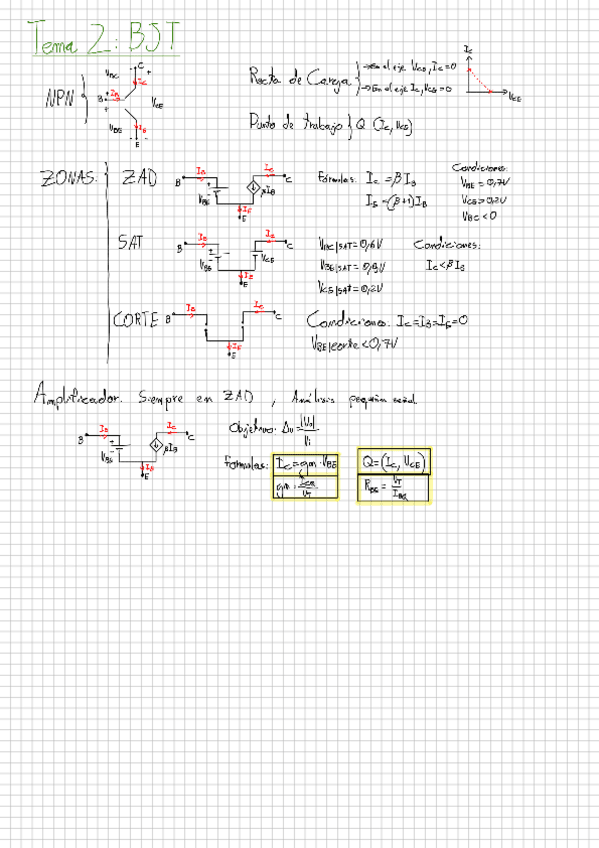 Tema 2: BJT
NPN
VBC
C
+
IC
B
IB
+
VCE
VBE
IE
E
Recta de Carga
→ En el eje VCE, IC=0
→ En el eje IC, VCE=0
IC
VCE
Punto de trabajo } Q (IC, VCE)
ZONAS:
ZAD
B
IB
+
VBE
IE
E
βIB
IC
C
Fórmulas: IC = βIB
IE = (β+1)IB
Condiciones:
VBE = 0,7V
VCE > 0,2V
VBC < 0
SAT
B
IB
VBE
IE
E
VCE
IC
C
VBC|SAT = 0,6V
VBE|SAT = 0,8V
VCE|SAT = 0,2V
Condiciones:
IC < βIB
CORTE
B
IB
IE
E
IC
C
Condiciones: IC=IB=IE=0
VBE|corte < 0,7V
Amplificador: Siempre en ZAD, Análisis pequeña señal
B
IB
+
VBE
IE
E
βIB
IC
C
Objetivo: Δv = |Vo|/Vi
Fórmulas:
IC = gm · VBE
gm = ICQ/VT
Q = (IC, VCE)
RBE = VT/IBQ